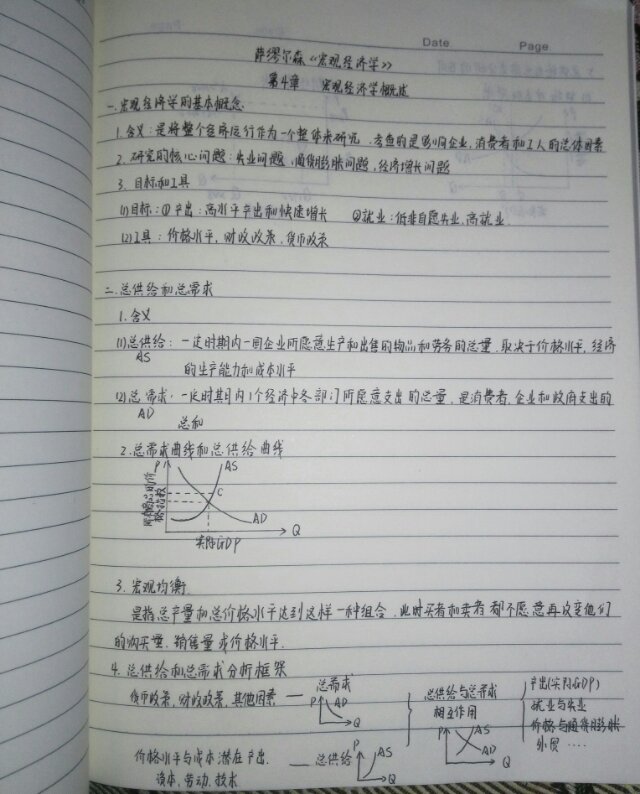 Date Page
萨缪尔森《宏观经济学》
第4章 宏观经济学概述
一.宏观经济学的基本概念
1.含义:是将整个经济运行作为一个整体来研究,考查的是影响企业,消费者和工人的总体因素
2.研究的核心问题:失业问题,通货膨胀问题,经济增长问题
3.目标和工具
(1)目标:①产出:高水平产出和快速增长 ②就业:低非自愿失业,高就业.
(2)工具:价格水平,财政政策,货币政策
二.总供给和总需求
1.含义
(1)总供给:一定时期内一国企业所愿意生产和出售的物品和劳务的总量.取决于价格水平,经济
AS 的生产能力和成本水平
(2)总需求:一定时期内1个经济中各部门所愿意支出的总量,是消费者,企业和政府支出的
AD 总和
2.总需求曲线和总供给曲线
P AS
C
AD Q
实际GDP
3.宏观均衡
是指总产量和总价格水平达到这样一种组合,此时买者和卖者都不愿意再改变他们
的购买量,销售量或价格水平.
4.总供给和总需求分析框架
货币政策,财政政策,其他因素 — 总需求 P AD Q
总供给与总需求 相互作用 P AS AD Q
产出(实际GDP)
就业与失业
价格与通货膨胀
外贸 ....
价格水平与成本,潜在产出. — 总供给 P AS Q
资本,劳动,技术